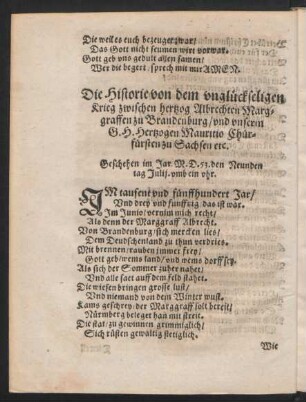 Die weil es euch bezeuget zwar/
Das Gott nicht seumen wirt vorwar.
Gott geb uns gedult allen samen/
Wer die begert/ sprech mit mir AMEN.
Die Historie von dem vnglückseligen
Krieg zwischen hertzog Albrechten Marg-
graffen zu Brandenburg/ vnd vnserm
G. H. Hertzogen Mauritio Chür-
fürsten zu Sachsen etc.
Geschehen im Jar M. D. 53. den Neunden
tag Julij. vmb ein vhr.
IM tausent vnd fünffhundert Jar/
Vnd drey vnd funffzig das ist war.
Im Junio/ vernim mich recht/
Als denn der Marggraff Albrecht.
Von Brandenburg/ sich mercken lies/
Dem Deudschenland zu thun verdries.
Mit brennen/ rauben jmmer frey/
Gott geb/ wems land/ vnd wems dorff sey.
Als sich der Sommer zuher nahet/
Vnd alle saet auff dem feld stahet.
Die wiesen bringen grosse lust/
Vnd niemand von dem Winter wust.
Kams geschrey/ der Marggraff solt bereit/
Nürmberg beleget han mit streit.
Die stat/ zu gewinnen grimmiglich/
Sich rüsten gewaltig stetiglich.
Wie